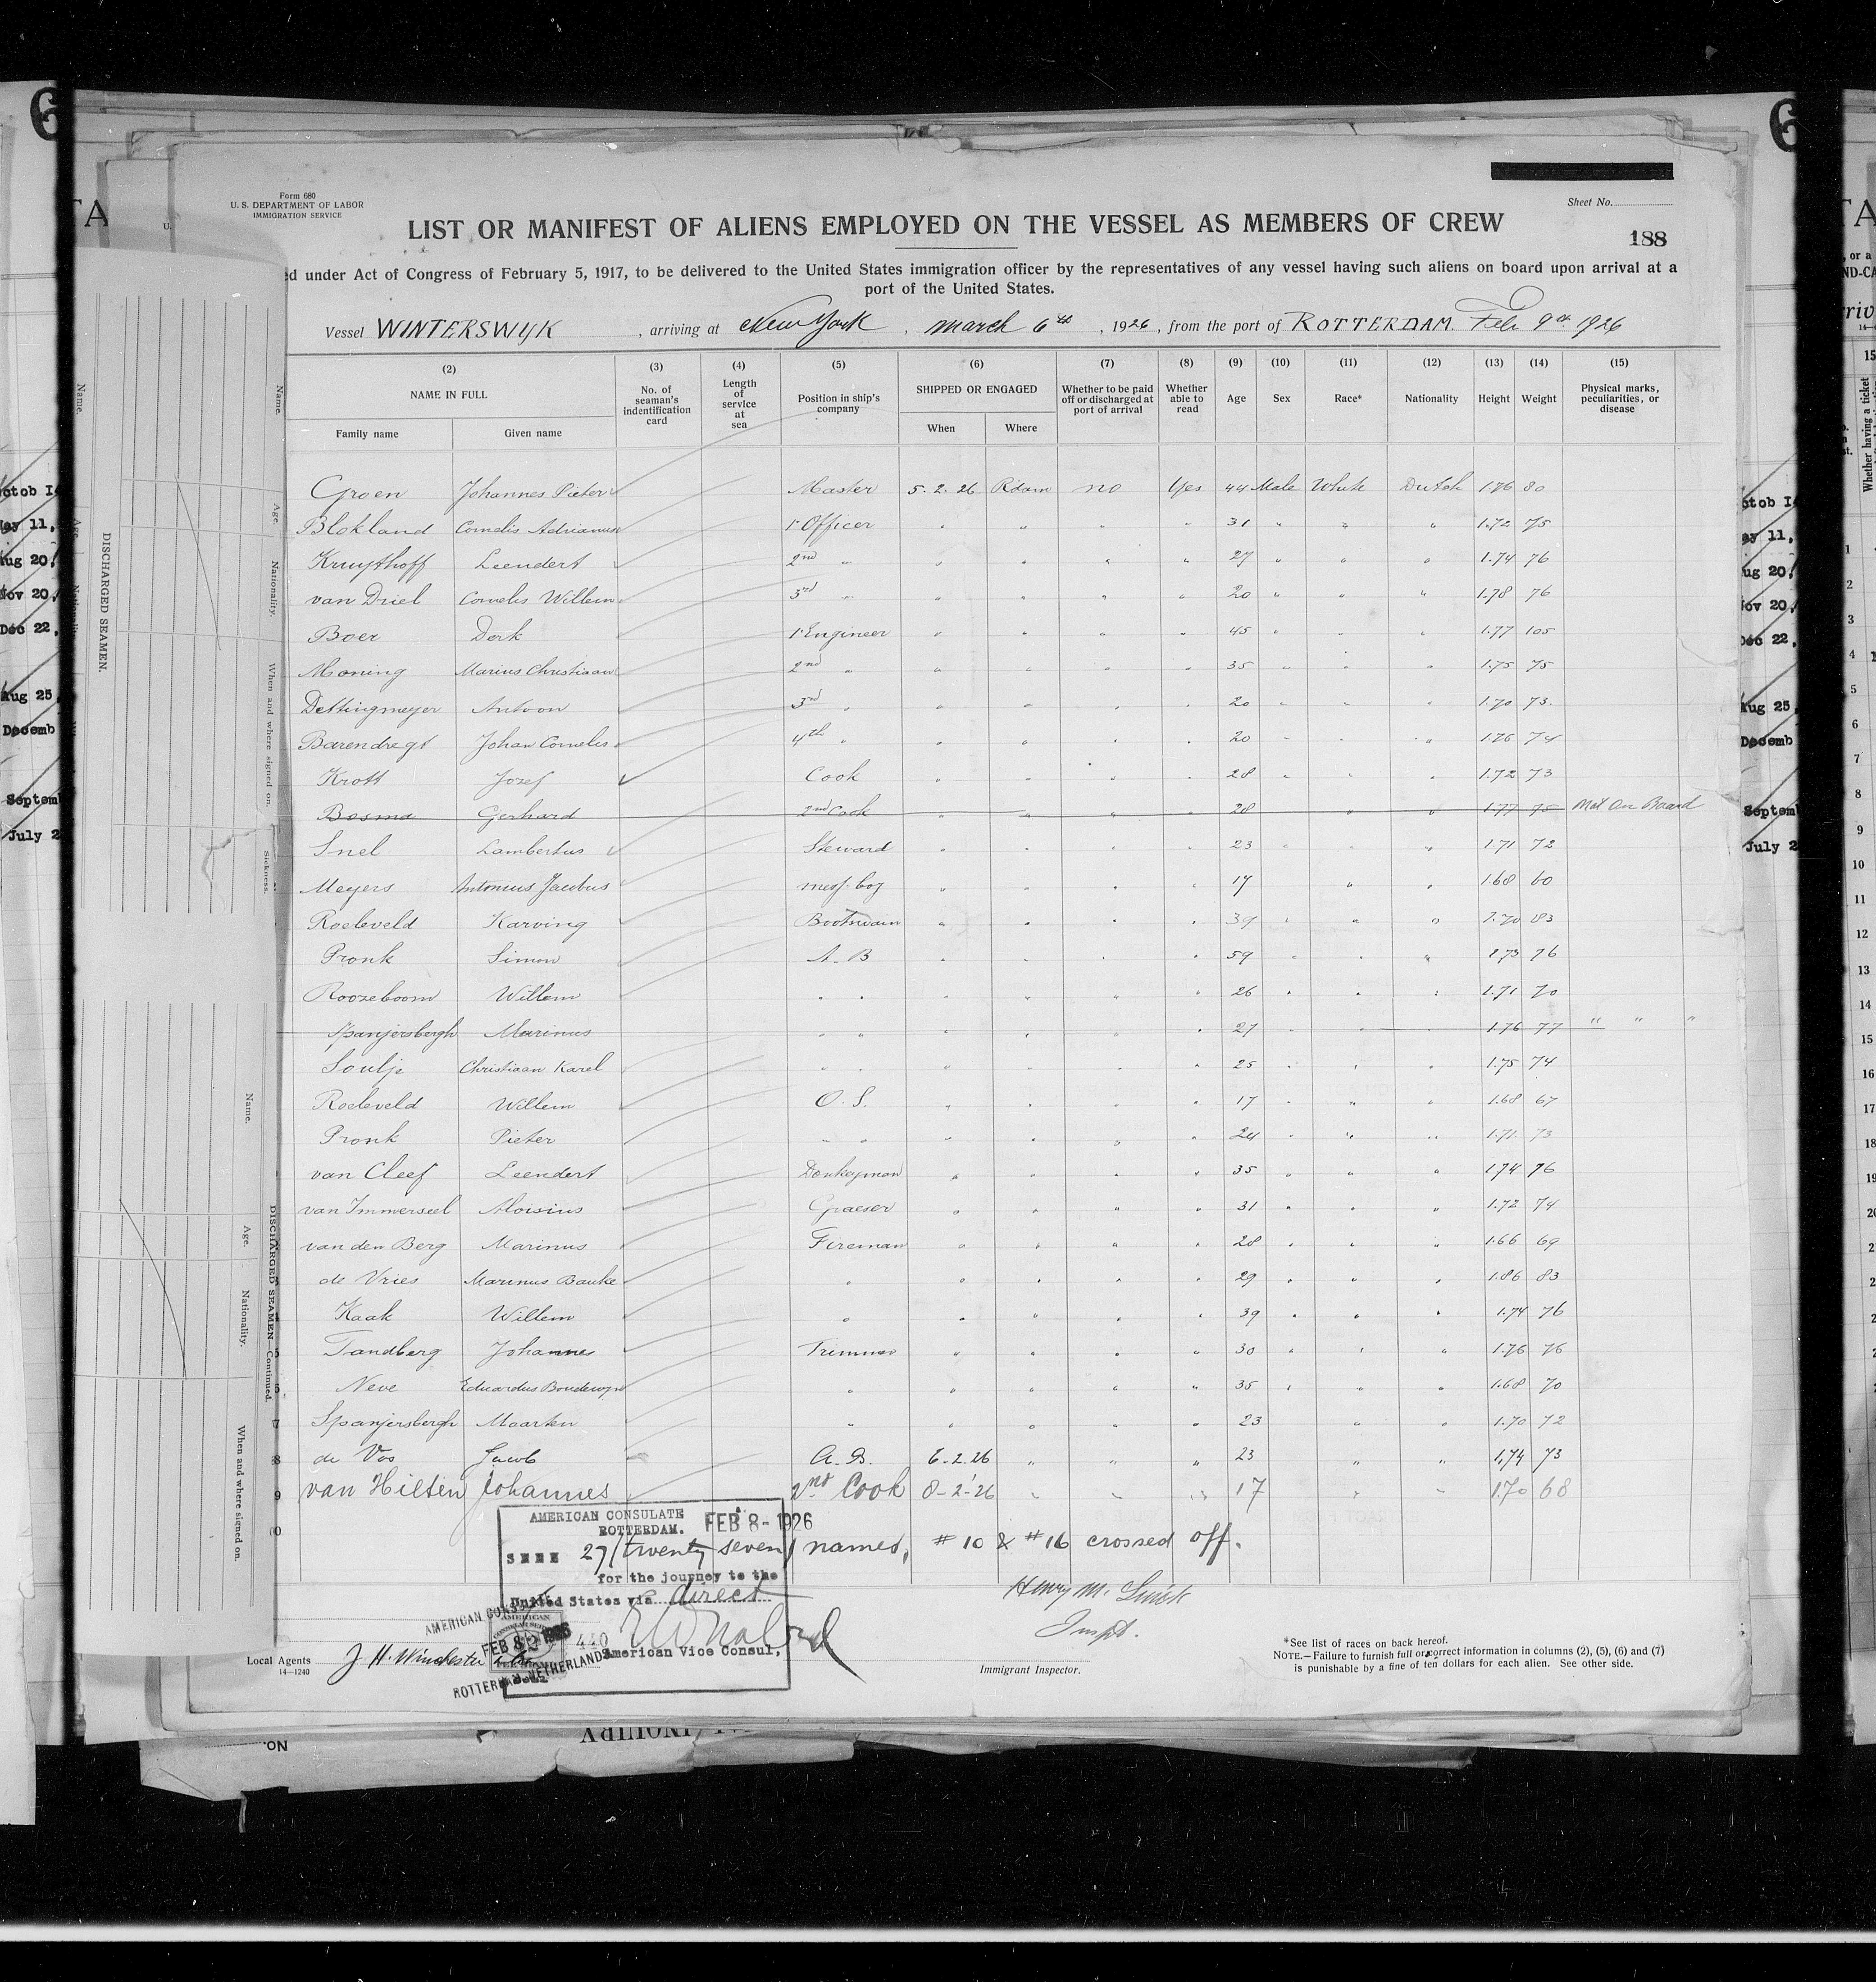 Form 680
U. S. DEPARTMENT OF LABOR
IMMIGRATION SERVICE
Sheet No.
LIST OR MANIFEST OF ALIENS EMPLOYED ON THE VESSEL AS MEMBERS OF CREW
188
ed under Act of Congress of February 5, 1917, to be delivered to the United States immigration officer by the representatives of any vessel having such aliens on board upon arrival at a
port of the United States.
Vessel WINTERSWYK, arriving at New York, March 6th, 1926, from the port of ROTTERDAM. Feb 9th 1926
(2) (3) (4) (5) (6) (7) (8) (9) (10) (11) (12) (13) (14) (15)
NAME IN FULL Family name Given name No. of seaman's indentification card Length of service at sea Position in ship's company SHIPPED OR ENGAGED When Where Whether to be paid off or discharged at port of arrival Whether able to read Age Sex Race* Nationality Height Weight Physical marks, peculiarities, or disease
Groen Johannes Pieter Master 5.2.26 R'dam no Yes 44 Male White Dutch 1.76 80
Blokland Cornelis Adrianus 1e Officer " " " " 31 " " " 1.72 75
Kruythoff Leendert 2nd " " " " " 27 " " " 1.74 76
van Driel Cornelis Willem 3rd " " " " " 20 " " " 1.78 76
Boer Dork 1e Engineer " " " " 45 " " " 1.77 105
Moning Marius Christiaan 2nd " " " " " 35 " " " 1.75 75
Dettingmeyer Antoon 3rd " " " " " 20 " " " 1.70 73.
Barendregt Johan Cornelis 4th " " " " " 20 " " " 1.76 74
Krott Jozef Cook " " " " 28 " " " 1.72 73
Bosma Gerhard 2nd Cook " " " " 28 " " 1.77 75 Not on Board
Snel Lambertus Steward " " " " 23 " " " 1.71 72
Meyers Antonius Jacobus mess boy " " " " 17 " " 1.68 60
Roeleveld Karving Bootswain " " " " 39 " " " 1.70 83
Pronk Simon A. B " " " " 59 " " " 1.73 76
Roozeboom Willem " " " " " " 26 " " " 1.71 70
Spanjersbergh Marinus " " " " " " 27 " " " 1.76 77 " " "
Soulje Christiaan Karel " " " " " " 25 " " " 1.75 74
Roeleveld Willem O. S. " " " " 17 " " " 1.68 67
Pronk Pieter " " " " " " 24 " " " 1.71. 73
van Cleef Leendert Donkeyman " " " " 35 " " " 1.74 76
van Immerseel Aloisius Graeser " " " " 31 " " " 1.72 74
van den Berg Marinus Fireman " " " " 28 " " " 1.66 69
de Vries Marinus Bauke " " " " " 29 " " " 1.86 83
Kaak Willem " " " " " 39 " " " 1.74 76
Tandberg Johannes Trimmer " " " " 30 " " " 1.76 76
Neve Eduardus Boudewyn " " " " " 35 " " " 1.68 70
Spanjersbergh Maarten " " " " " 23 " " 1.70 72
de Vos Jacob A. B. 6.2.26 " " " 23 " " 1,74 73
van Hilten Johannes 2nd Cook 8-2-'26 " " " 17 " " 1.70 68
AMERICAN CONSULATE
ROTTERDAM. FEB 8-1926
SEEN 27 (twenty seven) names, #10 & #16 crossed off.
for the journey to the
United States via direct
American Vice Consul,
AMERICAN
FEB 8 1926
440
ROTTERDAM, NETHERLANDS
Henry M.
Inspt.
Immigrant Inspector.
Local Agents J. H. Winchester & Co
14—1240
*See list of races on back hereof.
NOTE.—Failure to furnish full or correct information in columns (2), (5), (6) and (7)
is punishable by a fine of ten dollars for each alien. See other side.
DISCHARGED SEAMEN.
Name.
Age.
Nationality.
When and where signed on.
Sickness.
DISCHARGED SEAMEN—Continued.
Name.
Age.
Nationality.
When and where signed on.
Aug 20,
Nov 20,
Dec 22,
Aug 25,
Decemb
Septem
July 2
INQUIRY
No.